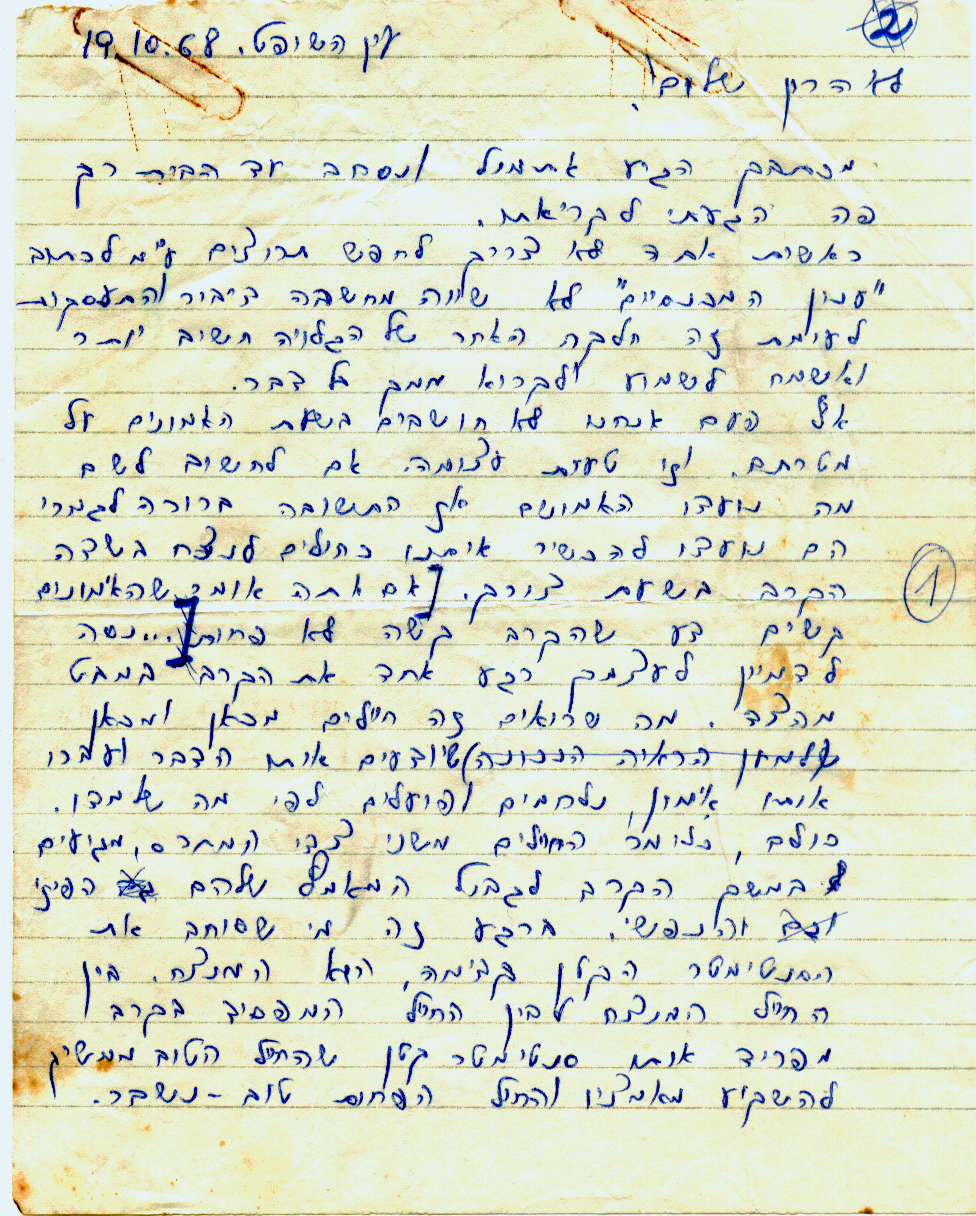 2
עין השופט. 19.10.68
לאהרון שלום!
מכתבך הגיע אתמול ונסחב עד הבית רק
פה הגעתי לקריאתו.
ראשית אתה לא צריך לחפש תרוצים ע"מ לכתוב
"ענין המכנסיים" לא שווה מחשבה דיבור והתעסקות
לעומת זה חלקה האחר של הגלויה חשוב יותר
ואשמח לשמוע ולקרוא ממך כל דבר.
אף פעם אנחנו לא חושבים בשעת האמונים על
מטרתם. וזו טעות עצומה. אם לחשוב לשם
מה נועדו האמונים אז התשובה ברורה לגמרי
הם נועדו להכשיר אותנו כחילים לנצח בשדה
הקרב בשעת צורך. [אם אתה אומר שהאימונים
1
קשים דע שהקרב קשה לא פחות]...נסה
לדמיין לעצמך רגע אחד את הקרב במבט
מהצד. מה שרואים זה חיילים מכאן ומכאן
הראיה הנכונה) שיודעים אותו הדבר ועברו
אותו אימון, נלחמים ופועלים לפי מה שלמדו.
כולם, כלומר החיילים משני צדי המתרס, מגיעים
במשך הקרב לגבול המאמץ שלהם הפיזי
והנפשי. ברגע זה מי שסוחב את
הסנטימטר הקטן קדימה, הוא המנצח. בין
החייל המנצח לבין החייל המפסיד בקרב
מפריד אותו סנטימטר קטן שהחייל הטוב ממשיך
להשקיע מאמציו והחייל הפחות טוב - נשבר.